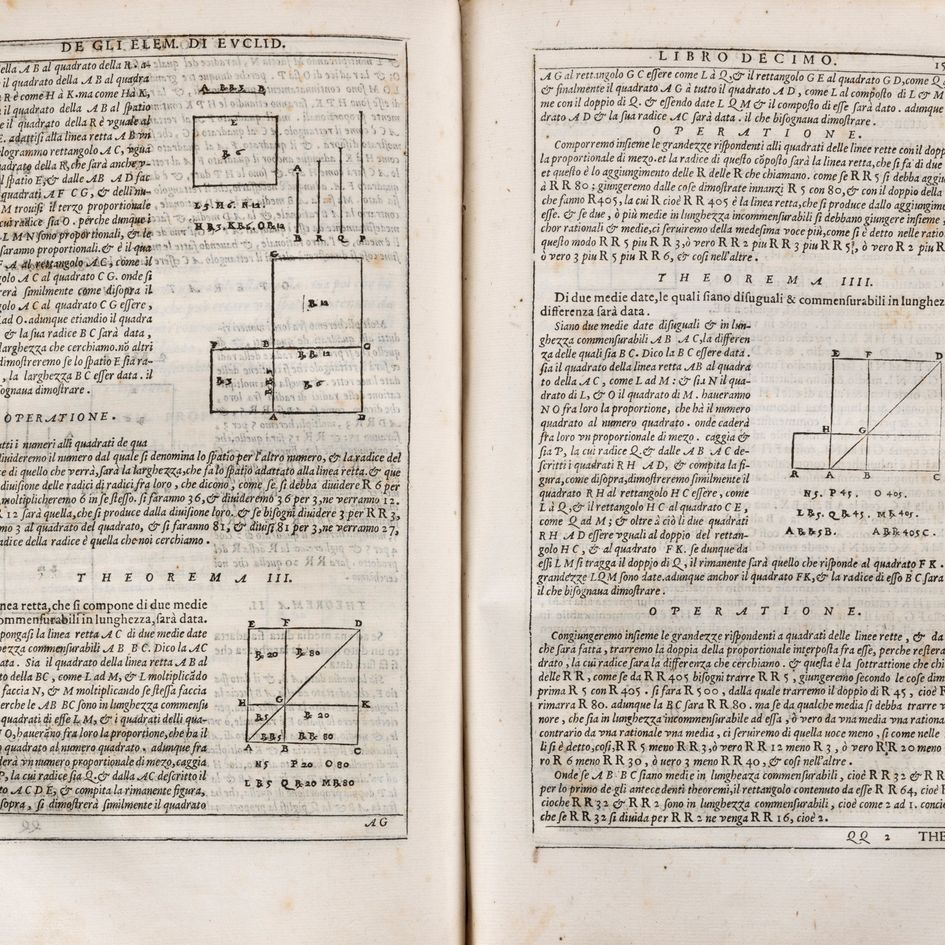 DE GLI ELEM. DI EVCLID.
della A B al quadrato della R. a-
il quadrato della A B al quadra
R è come H à K. ma come H à K,
il quadrato della A B al spatio
e il quadrato della R è vguale al
E. adattisi alla linea retta A B vn
logrammo rettangolo A C, vgua
quadrato della R, che sarà anche v-
l spatio E, & dalle A B A D fac
quadrati A F C G, & dell'nu-
M trouisi il terzo proportionale
cui radice sia O. perche dunque i
L M N sono proportionali, & le
saranno proportionali. & è il qua
F A al rettangolo A C, come il
golo A C al quadrato C G. onde si
rerà similmente come disopra il
golo A C al quadrato C G essere,
ad O. adunque etiandio il quadra
& la sua radice B C sarà data,
larghezza che cerchiamo. nõ altri
dimostreremo se lo spatio E sia ra-
, la larghezza B C esser data. il
sognaua dimostrare.
OPERATIONE.
tutti i numeri alli quadrati de qua
diuideremo il numero dal quale si denomina lo spatio per l'altro numero, & la radice del
e di quello che verrà, sarà la larghezza, che fa lo spatio adattato alla linea retta. & que
diuisione delle radici di radici fra loro, che dicono, come se si debba diuidere R 6 per
moltiplicheremo 6 in se stesso. si faranno 36, & diuideremo 36 per 3, ne verranno 12.
R 12 sarà quella, che si produce dalla diuisione loro. & se bisogni diuidere 3 per RR 3,
mo 3 al quadrato del quadrato, & si faranno 81, & diuisi 81 per 3, ne verranno 27,
adice della radice è quella che noi cerchiamo.
THEOREMA III.
inea retta, che si compone di due medie
commensurabili in lunghezza, sarà data.
pongasi la linea retta A C di due medie date
ghezza commensurabili A B B C. Dico la A C
ata. Sia il quadrato della linea retta A B al
to della B C, come L ad M, & L moltiplicãdo
faccia N, & M moltiplicando se stessa faccia
perche le A B B C sono in lunghezza commensu
quadrati di esse L M, & i quadrati delli qua-
N O, haueranno fra loro la proportione, che hà il
o quadrato al numero quadrato, adunque fra
derà vn numero proportionale di mezo, caggia
P, la cui radice sia Q. & dalla A C descritto il
to A C D E, & compita la rimanente figura,
sopra, si dimostrerà similmente il quadrato
A G
A RR 3 B
E
R 6
L 3. H 6. R 12
H R 3. K R 6. O R 12
B R Q P
G
R 12
F B C
R 12
R 3
R 6
A D
E F D
R 20 R 80
H G K
R 5 R 20
RR 5 RR 80
A B C
N 5 P 20 O 80
L R 5 Q R 20 M R 80
LIBRO DECIMO. 15
A G al rettangolo G C essere come L à Q, & il rettangolo G E al quadrato G D, come Q
& finalmente il quadrato A G à tutto il quadrato A D, come L al composto di L & M
me con il doppio di Q. & essendo date L Q M & il composto di esse sarà dato. adunque
drato A D & la sua radice A C sarà data. il che bisognaua dimostrare.
OPERATIONE.
Comporremo insieme le grandezze rispondenti alli quadrati delle linee rette con il dopp
la proportionale di mezo. et la radice di questo cõposto sarà la linea retta, che si fa di due
et questo è lo aggiungimento delle R delle R che chiamano. come se RR 5 si debba aggiu
à RR 80; giungeremo dalle cose dimostrate innanzi R 5 con 80, & con il doppio della
che fanno R 405, la cui R cioè RR 405 è la linea retta, che si produce dallo aggiungime
esse. & se due, ò più medie in lunghezza incommensurabili si debbano giungere insieme,
chor rationali & medie, ci seruiremo della medesima voce più, come si è detto nelle ratio
questo modo RR 5 piu RR 3, ò vero RR 2 piu RR 3 piu RR 5, ò vero R 2 piu R
ò vero 3 piu R 5 piu RR 6, & cosi nell'altre.
THEOREMA IIII.
Di due medie date, le quali siano disuguali & commensurabili in lunghez
differenza sarà data.
Siano due medie date disuguali & in lun-
ghezza commensurabili A B A C, la differen
za delle quali sia B C. Dico la B C essere data.
sia il quadrato della linea retta A B al quadra
to della A C, come L ad M: & sia N il qua-
drato di L, & O il quadrato di M. haueranno
N O fra loro la proportione, che hà il numero
quadrato al numero quadrato. onde caderà
fra loro vn proportionale di mezo. caggia &
sia P, la cui radice Q. & dalle A B A C de-
scritti i quadrati R H A D, & compita la fi-
gura, come disopra, dimostreremo similmente il
quadrato R H al rettangolo H C essere, come
L à Q, & il rettangolo H C al quadrato C E,
come Q ad M; & oltre à ciò li due quadrati
R H A D essere vguali al doppio del rettan-
golo H C, & al quadrato F K. se dunque da
essi L M si tragga il doppio di Q, il rimanente sarà quello che risponde al quadrato F K.
grandezze L Q M sono date. adunque anchor il quadrato F K, & la radice di esso B C sara
il che bisognaua dimostrare.
E F D
H G
R A B C
N 5. P 45. O 405.
L R 5. Q R 45. M R 405.
A RR 5 B. A RR 405 C.
OPERATIONE.
Congiungeremo insieme le grandezze rispondenti a quadrati delle linee rette, & da
che sarà fatta, trarremo la doppia della proportionale interposta fra esse, perche resterà
drato, la cui radice sara la differenza che cerchiamo. & questa è la sottrattione che chi
delle RR, come se da RR 405 bisogni trarre RR 5, giungeremo secondo le cose dim
prima R 5 con R 405. si fara R 500, dalla quale trarremo il doppio di R 45, cioè R
rimarra R 80. adunque la B C sara RR 80. ma se da qualche media si debba trarre v
nore, che sia in lunghezza incommensurabile ad essa, ò vero da vna media vna rationa
contrario da vna rationale vna media, ci seruiremo di quella uoce meno, si come nelle
li si è detto, cosi, RR 5 meno RR 3, ò vero RR 12 meno R 3, ò vero R R 20 meno
ro R 6 meno RR 30, ò uero 3 meno RR 40, & cosi nell'altre.
Onde se A B B C siano medie in lungheaza commensurabili, cioè RR 32 & RR
per lo primo de gli antecedenti theoremi, il rettangolo contenuto da esse RR 64, cioè R
cioche RR 32 & RR 2 sono in lunghezza commensurabili, cioè come 2 ad 1. concio
che se RR 32 si diuida per RR 2 ne venga RR 16, cioè 2.
QQ 2 THE